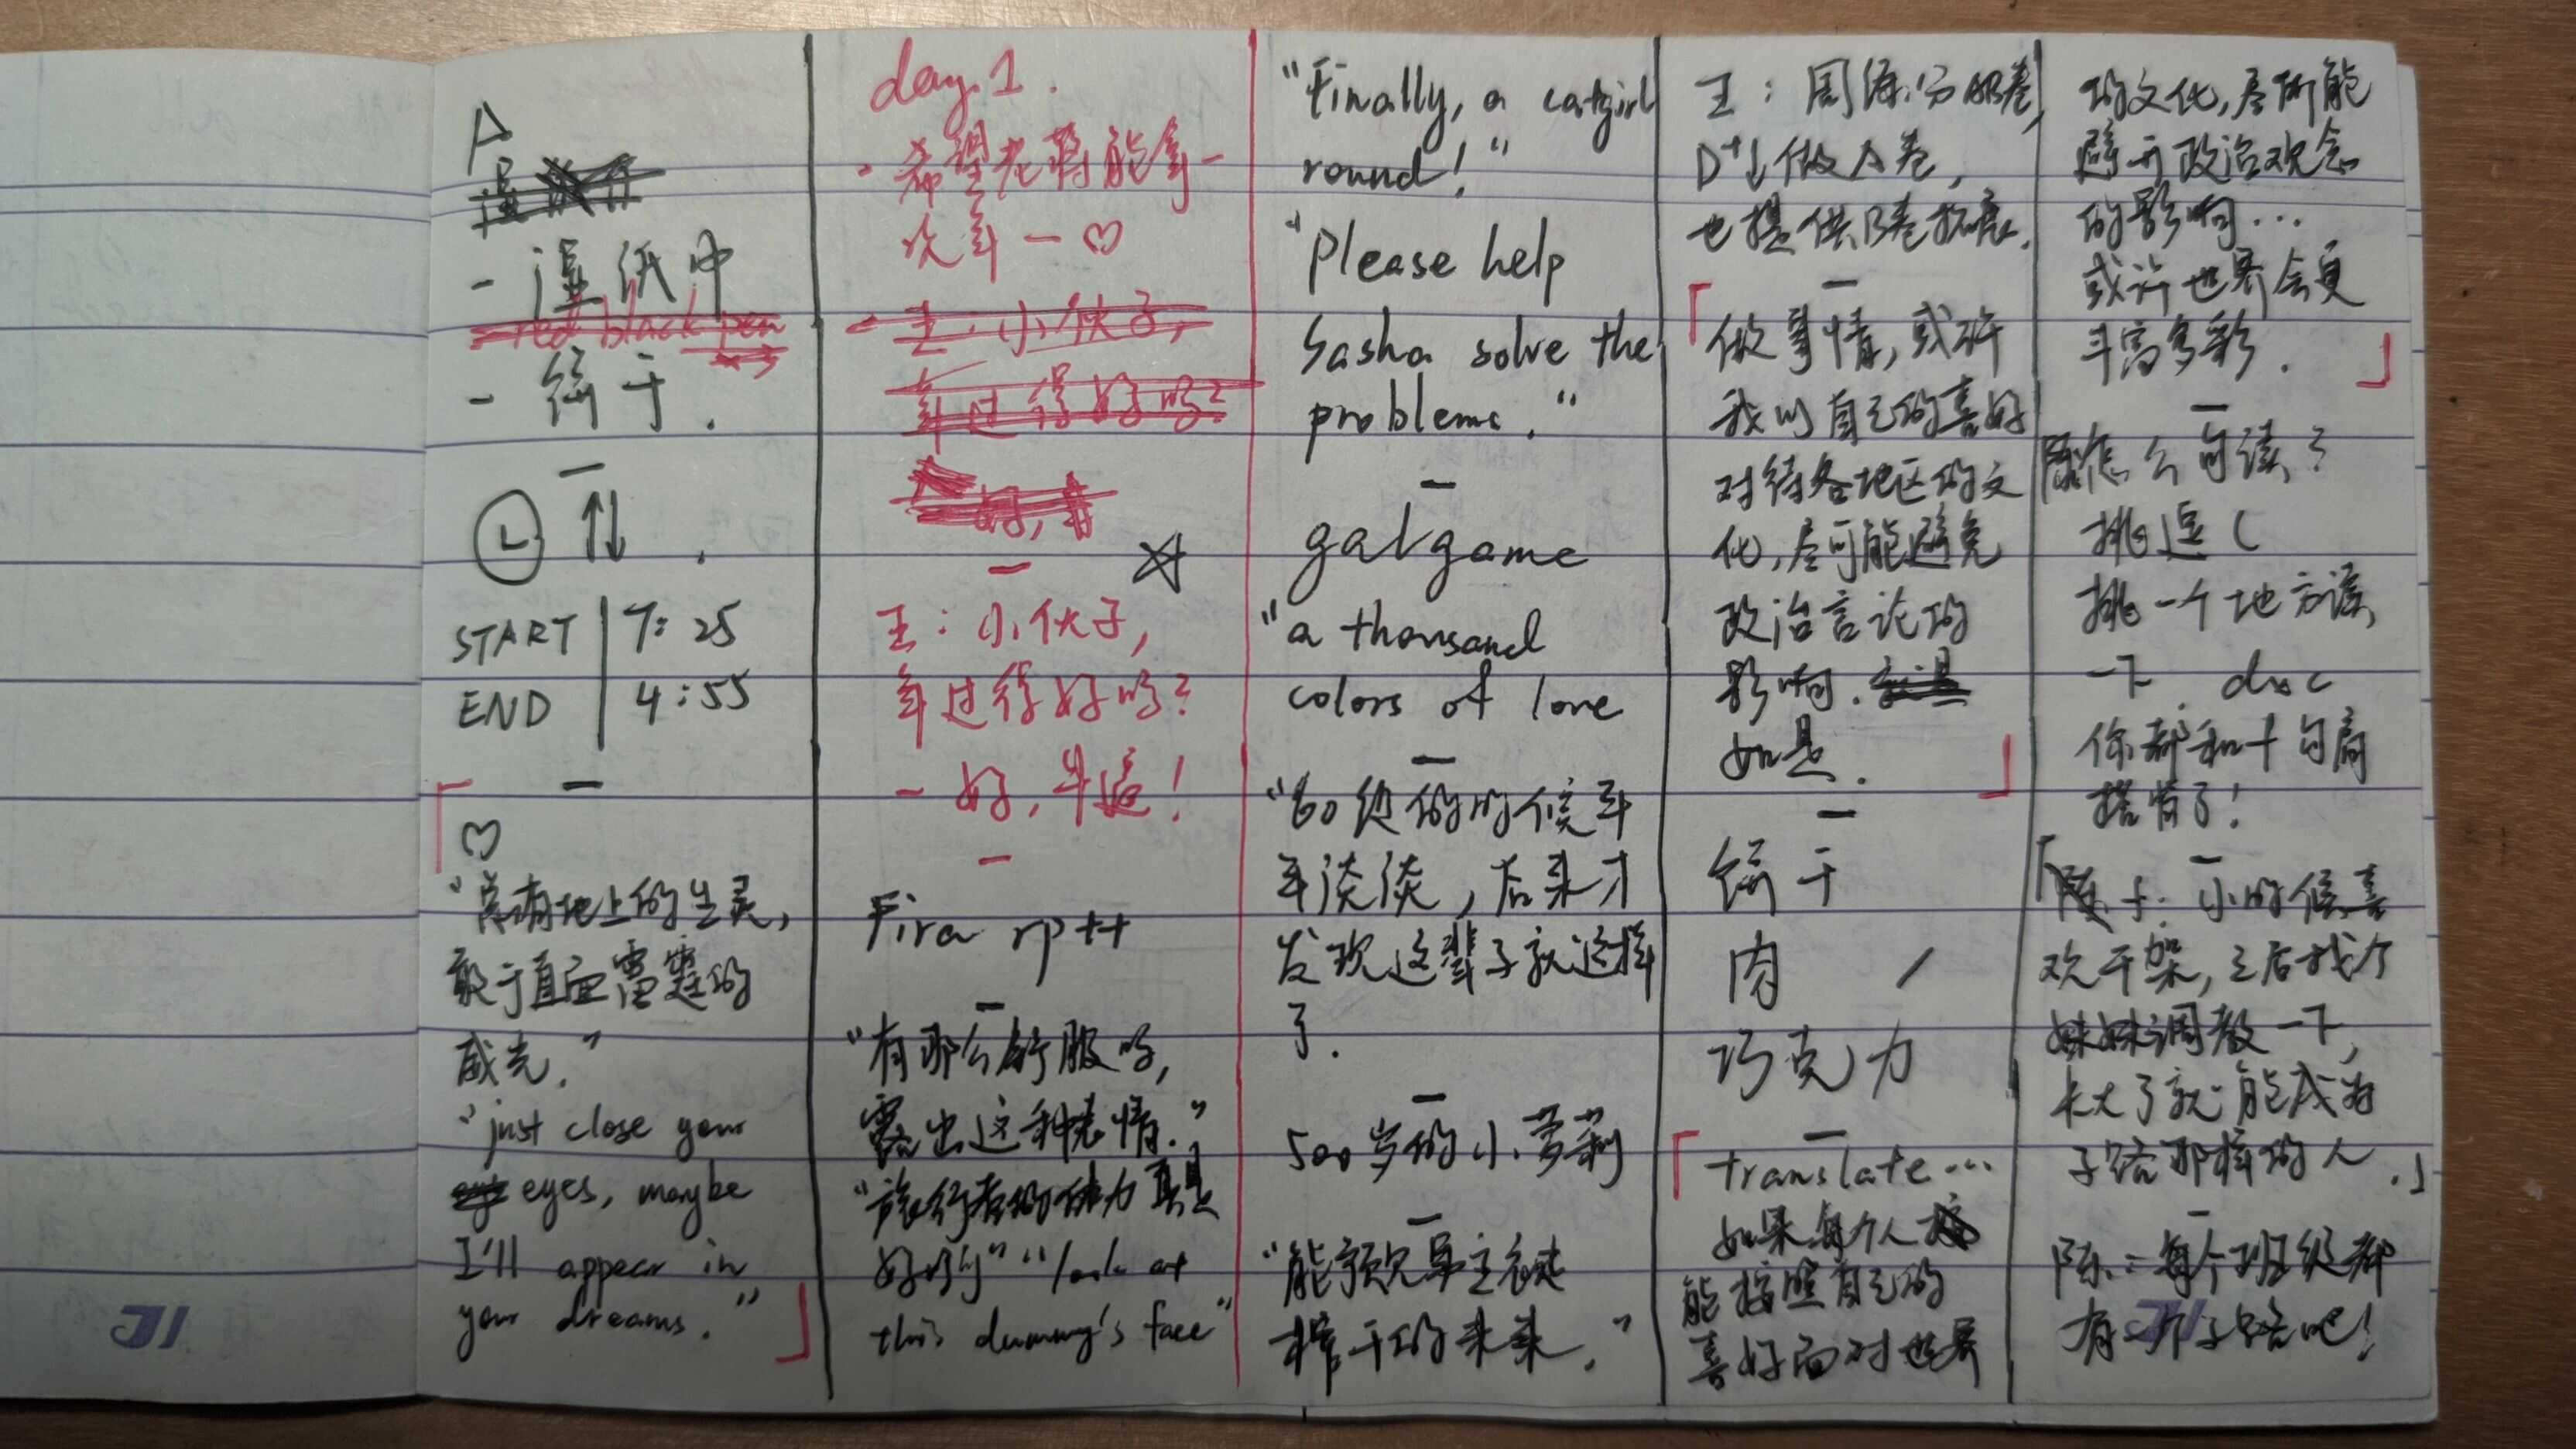 A
- 湿纸巾
- red black pen
- 饼干.
L ↑↓ .
START | 7:25
END | 4:55
「
♡
"总有地上的生灵,
敢于直面雷霆的
威光."
"just close your
eyes, maybe
I'll appear in
your dreams."
」
day 1.
·希望老蒋能拿一
次年一♡
- 王:小伙子,
年过得好吗?
好,
王:小伙子,
年过得好吗?
- 好,牛逼!
Fira rp++
"有那么舒服吗,
露出这种表情."
"旅行者的体力真是
好的" "look at
this dummy's face"
"Finally, a catgirl
round!"
"Please help
Sasha solve the
problems."
galgame
"a thousand
colors of love
"60级的时候平
平淡淡,后来才
发现这辈子就这样
了.
500岁的小萝莉
"能预见草主被
榨干的未来."
王:周练分AB卷,
D↓做A卷,
也提供B卷
「做事情,或许
我们自己的喜好
对待各地区的文
化,尽可能避免
政治言论的
影响.
如是. 」
饼干
肉
巧克力
「translate...
如果每个人
能按照自己的
喜好面对世界
的文化,尽所能
避开政治观念
的影响...
或许世界会更
丰富多彩. 」
陈怎么句读?
挑逗(
挑一个地方读
一下 .doc
你都和十句
搭着了!
「陈子:小时候喜
欢干架,之后找个
妹妹调教一下,
长大了就能成为
子路那样的人.」
陈:每个班级都
有一个子路吧!
JI
JI